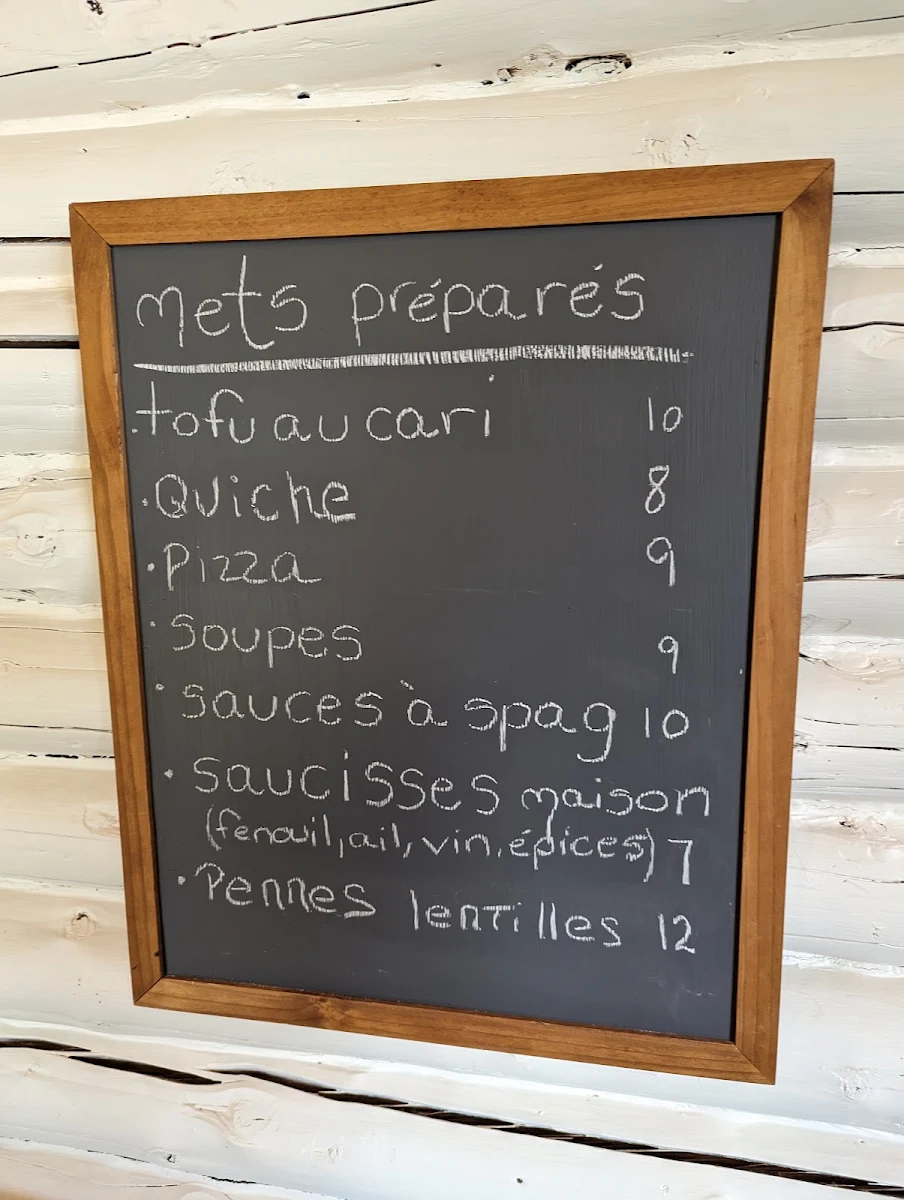 Mets préparés
.tofu au cari 10
.Quiche 8
.Pizza 9
.soupes 9
.sauces à spag 10
.saucisses maison
(fenouil, ail, vin, épices) 7
.Pennes lentilles 12